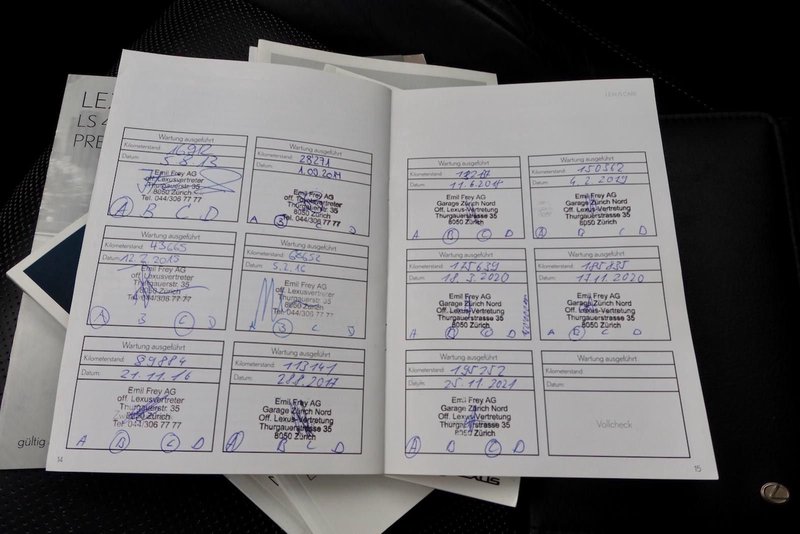 LE
LS 4
PRE
gültig
Wartung ausgeführt
Kilometerstand:
Datum: 5.8.13
Emil Frey AG
off. Lexusvertreter
Thurgauerstr. 35
8050 Zürich
Tel. 044/306 77 77
A B C D
Wartung ausgeführt
Kilometerstand: 28271
Datum: 1.09.2014
Emil Frey AG
off. Lexusvertreter
Thurgauerstr. 35
8050 Zürich
Tel. 044/306 77 77
A B D
Wartung ausgeführt
Kilometerstand: 43665
Datum: 12.2.2015
Emil Frey AG
off. Lexusvertreter
Thurgauerstr. 35
8050 Zürich
Tel. 044/306 77 77
A B C D
Wartung ausgeführt
Kilometerstand:
Datum: 5.2.16
Emil Frey AG
off. Lexusvertreter
Thurgauerstr. 35
8050 Zürich
Tel. 044/306 77 77
A B C D
Wartung ausgeführt
Kilometerstand: 89884
Datum: 21.11.16
Emil Frey AG
off. Lexusvertreter
Thurgauerstr. 35
8050 Zürich
Tel. 044/306 77 77
A B C D
Wartung ausgeführt
Kilometerstand: 113141
Datum: 28.8.2017
Emil Frey AG
Garage Zürich Nord
Off. Lexus-Vertretung
Thurgauerstrasse 35
8050 Zürich
A B C D
14
LEXUS CARE
Wartung ausgeführt
Kilometerstand:
Datum:
Emil Frey AG
Garage Zürich Nord
Off. Lexus-Vertretung
Thurgauerstrasse 35
8050 Zürich
A B C D
Wartung ausgeführt
Kilometerstand: 150562
Datum: 4.2.2019
Emil Frey AG
Garage Zürich Nord
Off. Lexus-Vertretung
Thurgauerstrasse 35
8050 Zürich
A B C D
Wartung ausgeführt
Kilometerstand: 175639
Datum: 18.3.2020
Emil Frey AG
Garage Zürich Nord
Off. Lexus-Vertretung
Thurgauerstrasse 35
8050 Zürich
A B C D
Wartung ausgeführt
Kilometerstand:
Datum: 17.11.2020
Emil Frey AG
Garage Zürich Nord
Off. Lexus-Vertretung
Thurgauerstrasse 35
8050 Zürich
A B C D
Wartung ausgeführt
Kilometerstand: 195252
Datum: 25.11.2021
Emil Frey AG
Garage Zürich Nord
Off. Lexus-Vertretung
Thurgauerstrasse 35
8050 Zürich
A B C D
Wartung ausgeführt
Kilometerstand:
Datum:
Vollcheck
15